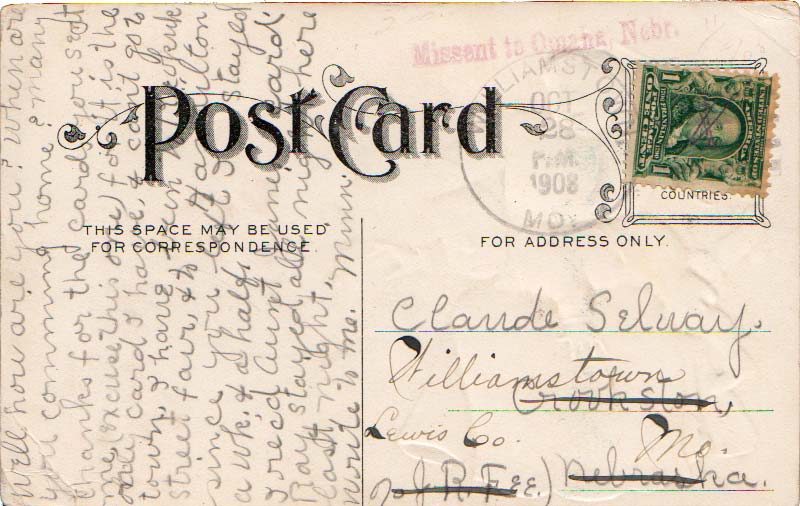 Missent to Omaha, Nebr.
Post Card
WILLIAMSTOWN
OCT
28
P.M.
1908
MO.
COUNTRIES.
THIS SPACE MAY BE USED
FOR CORRESPONDENCE.
FOR ADDRESS ONLY.
Claude Selway.
Williamstown
Crookston,
Lewis Co. Mo.
% J. R. Fee.) Nebraska.
Well how are you? When are
you comming home? many
thanks for the card you sent
me, (excuse this one) for it is the
only card I have, & can't go to
town. I have been to
street fair, & to Hamilton
since you left. I stayed
a wk. & a half.
I rec'd Aunt card
Ray stayed all night here
last night.
Write to me. Minn.